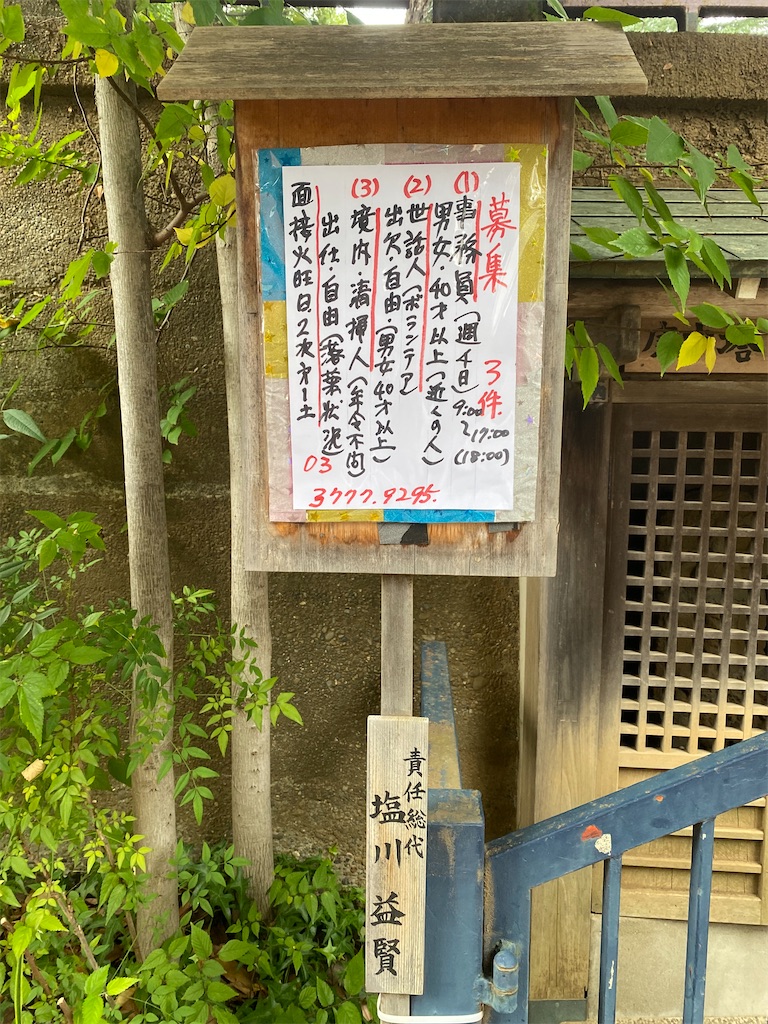 募集 3件
(1)事務員(週4日)9:00〜17:00(18:00)
男女・40才以上(近くの人)
(2)世話人(ボランテア)
出欠自由(男女40才以上)
(3)境内・清掃人(年令不問)
出仕・自由(落葉状況)
面接火旺日2次オー土
03
3777.9295.
責任総代
塩川益賢